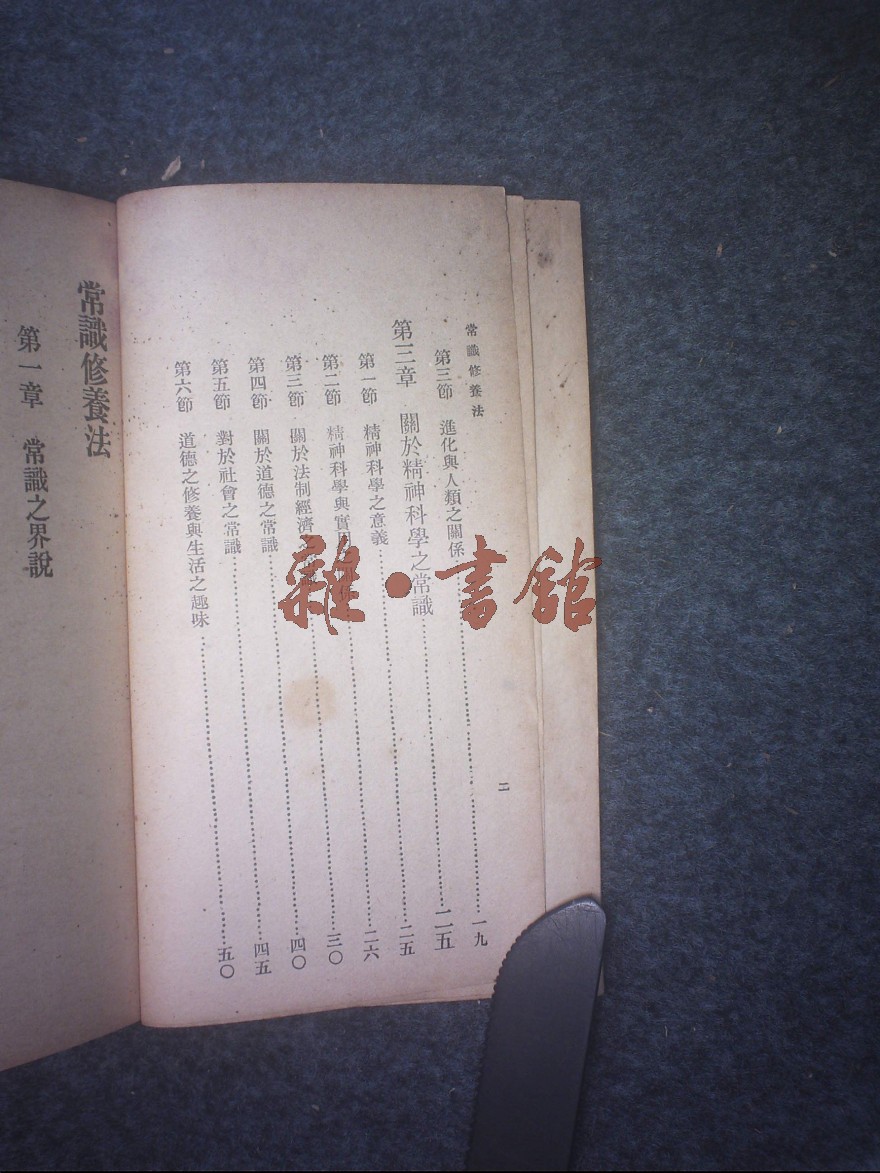 常識修養法
二
第三節 進化與人類之關係……一九
第三章 關於精神科學之常識……二五
第一節 精神科學之意義……二五
第二節 精神科學與實……二六
第三節 關於法制經濟……三〇
第四節 關於道德之常識……四〇
第五節 對於社會之常識……四五
第六節 道德之修養與生活之趣味……五〇
常識修養法
第一章 常識之界說
雜·書館